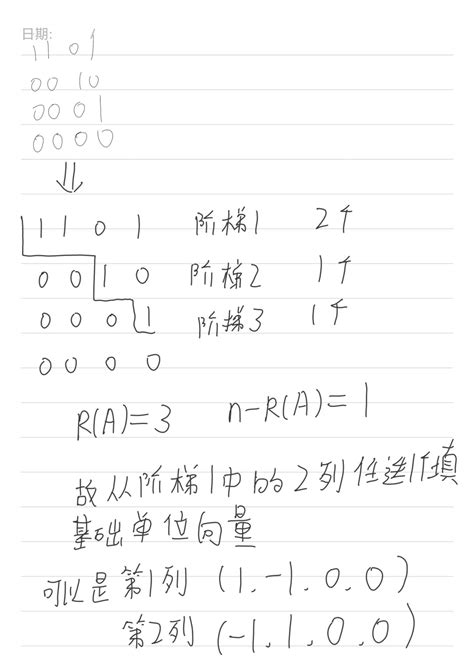 日期:
1 1 0 1
0 0 1 0
0 0 0 1
0 0 0 0
⇓
1 1 0 1 阶梯1 2个
0 0 1 0 阶梯2 1个
0 0 0 1 阶梯3 1个
0 0 0 0
R(A)=3 n-R(A)=1
故从阶梯1中的2列任选1个填
基础单位向量
可以是第1列 (1,-1,0,0)
第2列 (-1,1,0,0)